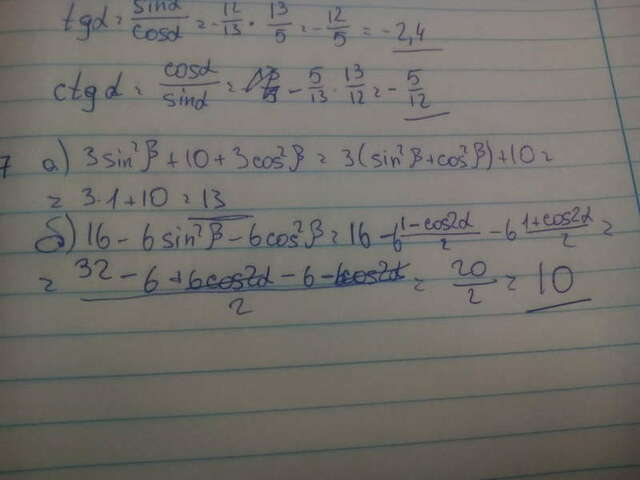 tgα = sinα/cosα = -12/13 · 13/5 = -12/5 = -2,4
ctgα = cosα/sinα = - 5/13 · 13/12 = - 5/12
7 а) 3sin²β + 10 + 3cos²β = 3(sin²β + cos²β) + 10 =
= 3·1 + 10 = 13
б) 16 - 6sin²β - 6cos²β = 16 - 6 1-cos2α/2 - 6 1+cos2α/2 =
= 32 - 6 + 6cos2α - 6 - 6cos2α/2 = 20/2 = 10